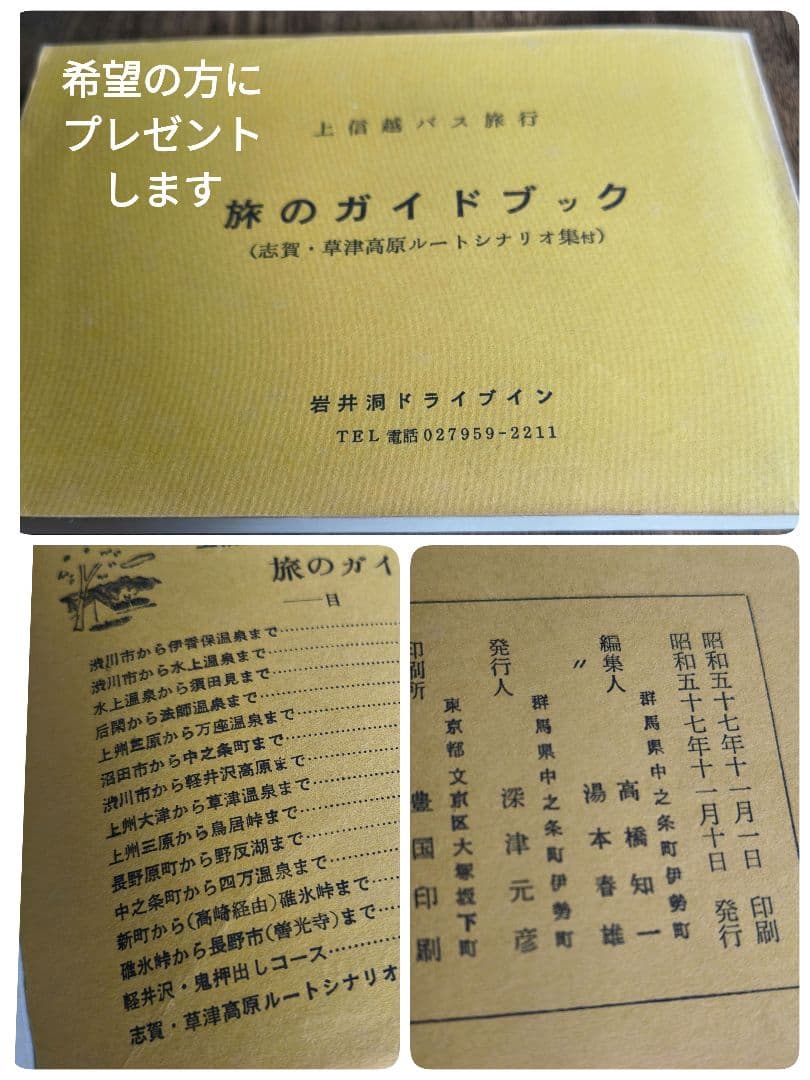 希望の方に
プレゼント
します
上信越バス旅行
旅のガイドブック
(志賀・草津高原ルートシナリオ集付)
岩井洞ドライブイン
TEL 電話 027959-2211
旅のガイ
――目
渋川市から伊香保温泉まで
渋川市から水上温泉まで
水上温泉から須田貝まで
后閑から法師温泉まで
上州三原から万座温泉まで
沼田市から中之条町まで
渋川市から軽井沢高原まで
上州大津から草津温泉まで
上州三原から鳥居峠まで
長野原町から野反湖まで
中之条町から四万温泉まで
新町から(高崎経由)碓氷峠まで
碓氷峠から長野市(善光寺)まで
軽井沢・鬼押出しコース
志賀・草津高原ルートシナリオ
昭和五十七年十一月一日 印刷
昭和五十七年十一月十日 発行
群馬県中之条町伊勢町
編集人 高橋知一
〃 湯本春雄
群馬県中之条町伊勢町
発行人 深津元彦
東京都文京区大塚坂下町
印刷所 豊国印刷